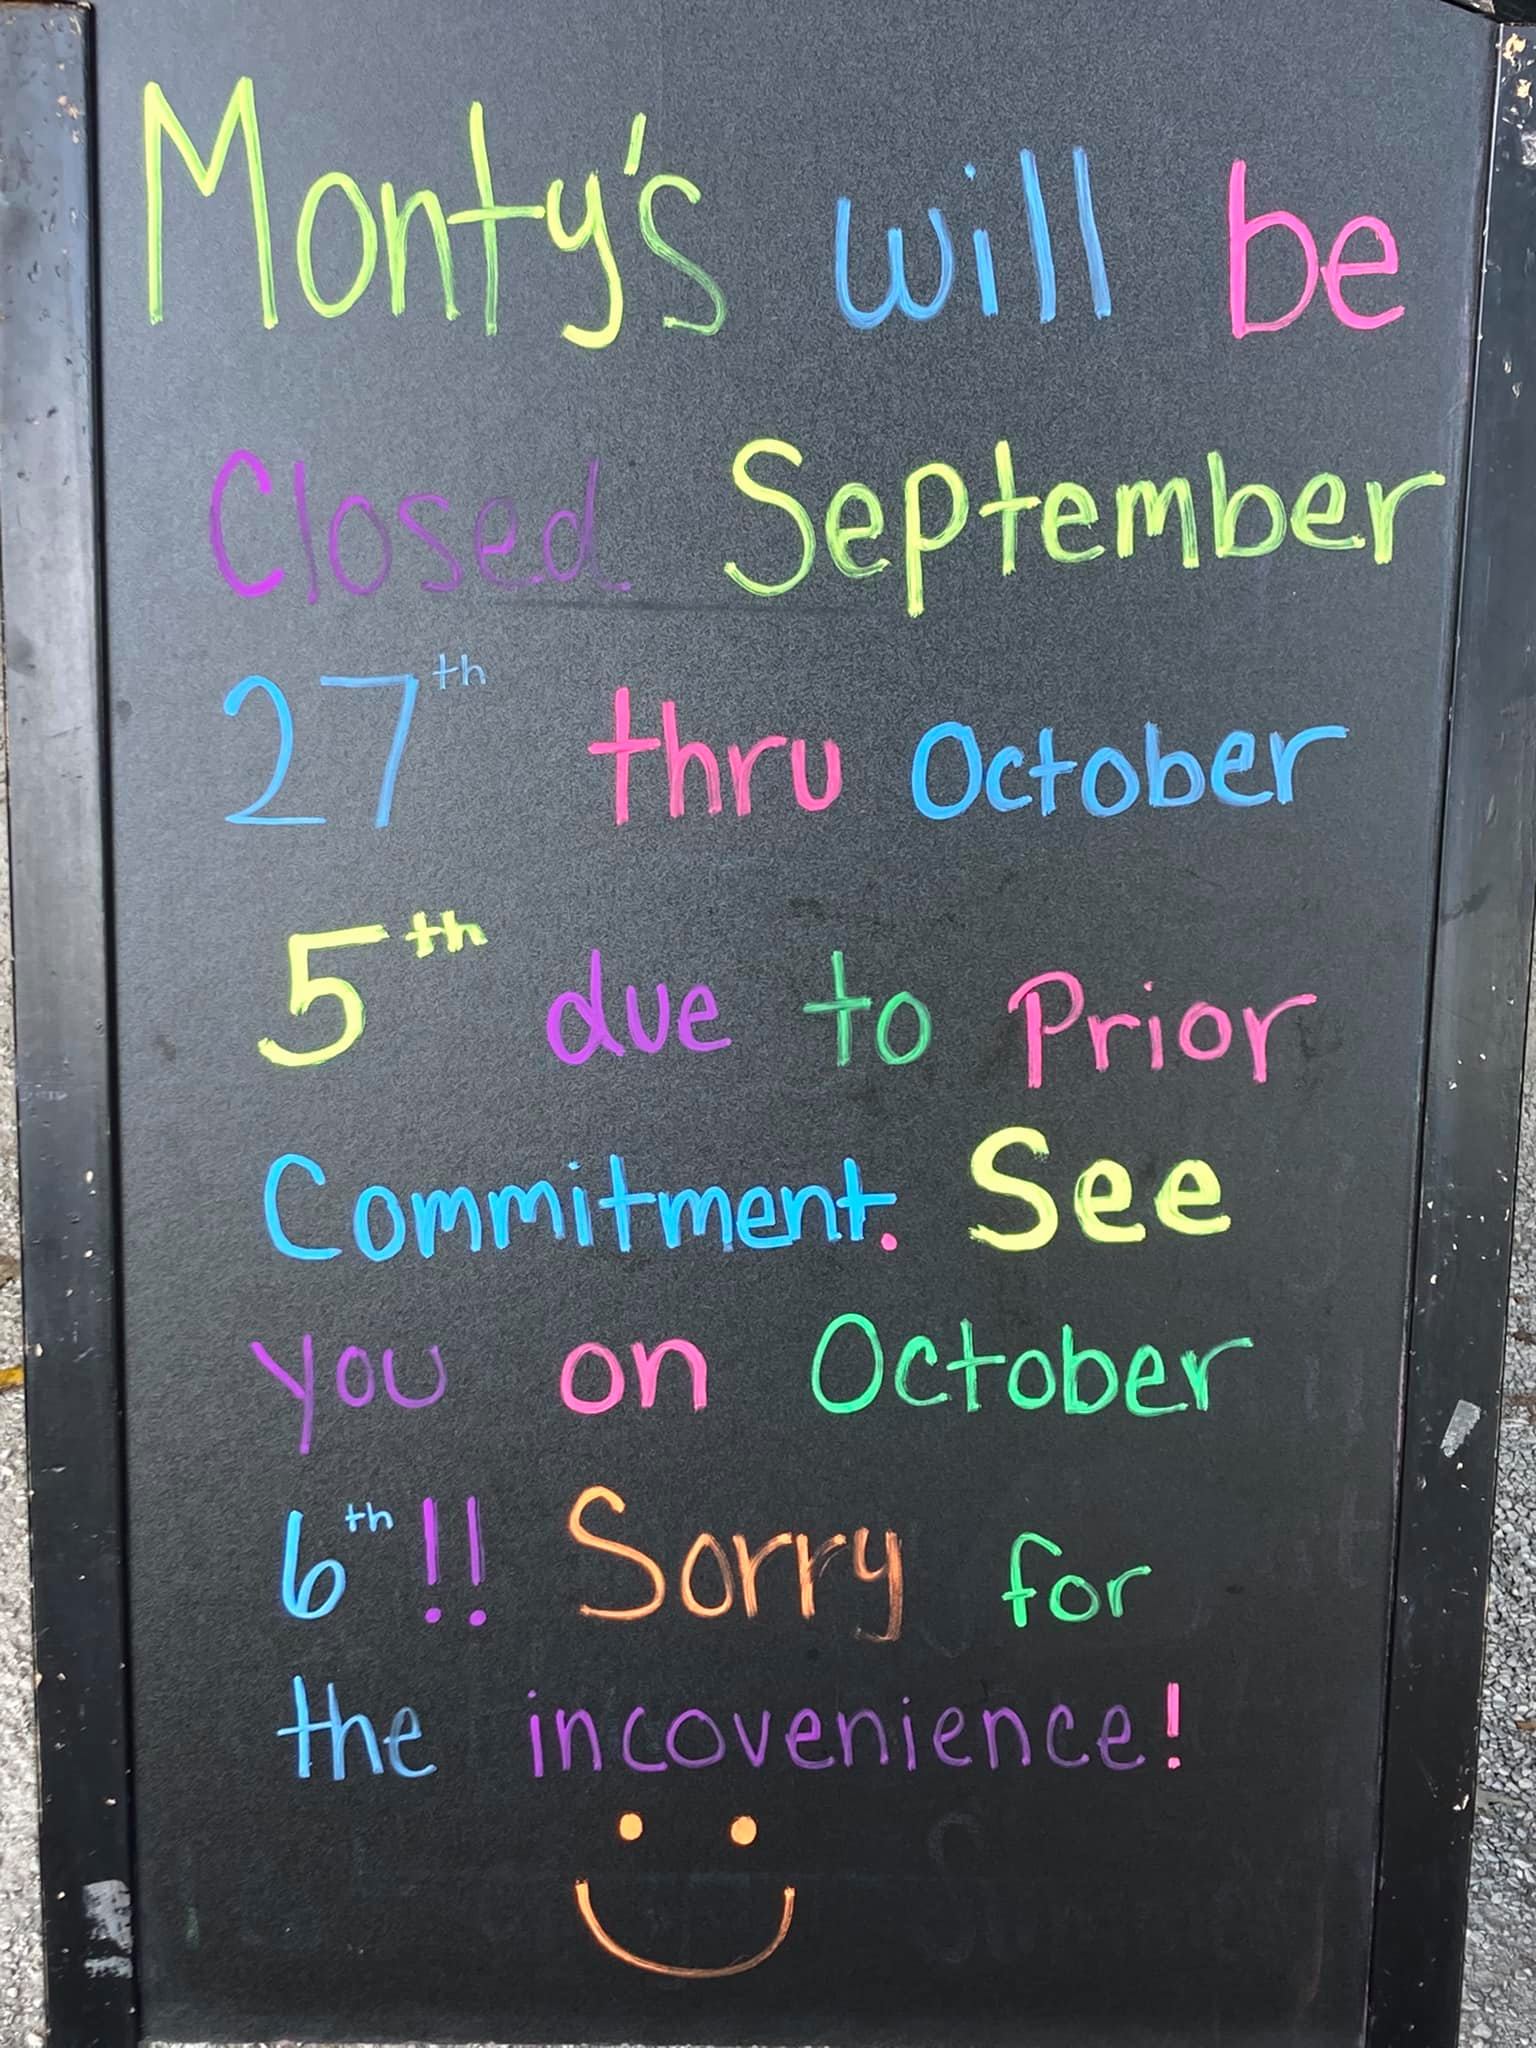 Monty's will be
Closed September
27th thru October
5th due to Prior
Commitment. See
you on October
6th!! Sorry for
the incovenience!